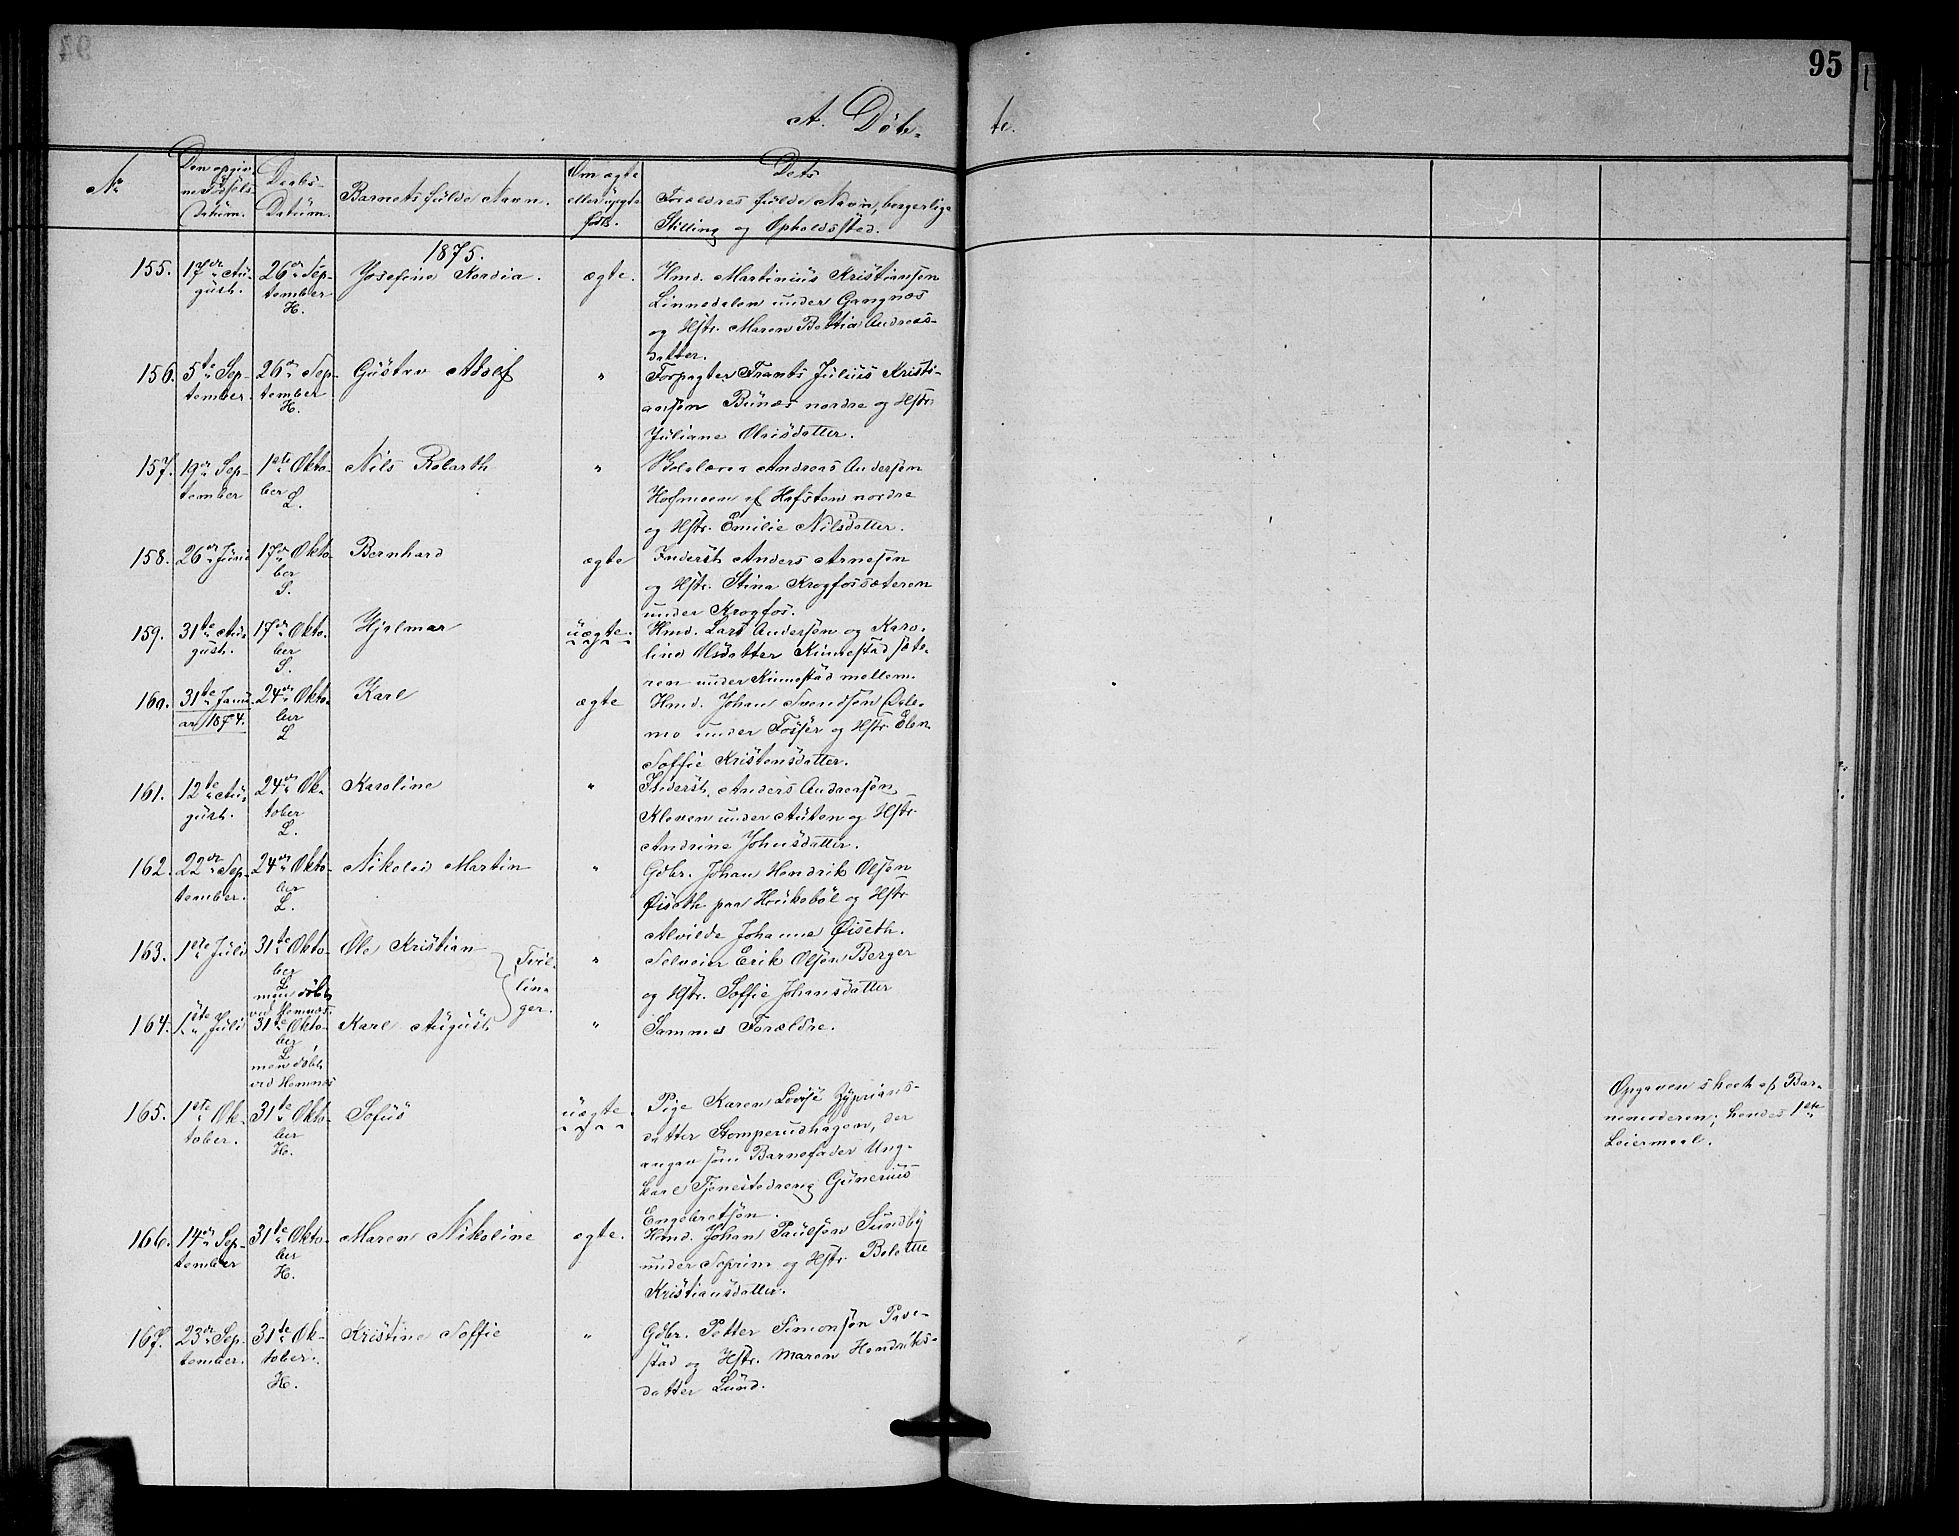 95
A. Døb-
te.
No
Den opgiv
ne Fødsels
Datum.
Daabs-
Datum.
Barnets fulde Navn.
Om ægte
eller uægte
født.
Dets
Forældres fulde Navn, borgerlige
Stilling og Opholdssted.
1875.
155.
17de Au-
gust.
26de Sep-
tember
H.
Josefine
ægte.
Hmd. Martinius Kristiansen
Linnedalen under Gangnæs
og Hstr. Maren Andreas-
datter.
156.
5te Sep-
tember.
26de Sep-
tember
H.
Gustav Adolf
"
Forpagter Frants Julius Kristi-
ansen Bunæs nordre og Hstr.
Juliane Olrisdatter.
157.
19de Sep-
tember
1ste Okto-
ber
L.
Nils
"
Andreas Andersen
af Hafsten nordre
og Hstr. Emilie Nilsdatter.
158.
26de Juni
17de Okto-
ber
S.
Bernhard
ægte
Inderst Anders Arnesen
og Hstr. Stina Krogfossæteren
under Krogfos.
159.
31te Au-
gust.
17de Okto-
ber
S.
Hjalmar
uægte.
Hmd. Lars Andersen og Karo-
line Olsdatter Kinnestadsæte-
ren under Kinnestad mellem.
160.
31te Janu-
ar 1874.
24de Okto-
ber
L
Karl
ægte
Hmd. Johan Svendsen
mo under Fosser og Hstr. Elen
Soffie Kristensdatter.
161.
12te Au-
gust.
24de Ok-
tober
L.
Karoline
"
Inderst. Anders Andersen
Kleven under Auten og Hstr.
Andrine Johnsdatter.
162.
22de Sep-
tember.
24de Okto-
ber
L.
Nikolai Martin
"
Gdbr. Johan Hendrik Olsen
Øiseth paa Haukebøl og Hstr
Alvilde Johanne Øiseth.
163.
1ste Juli
31te Okto-
ber
L
men døbt
ved Hemnæs.
Ole Kristian
Tvil-
lin-
ger.
"
Selveier Erik Olsen Berger
og Hstr. Soffie Johansdatter
164.
1ste Juli
31te Okto-
ber
L
men døbt
ved Hemnæs
Karl August
"
Samme Forældre.
165.
1ste Ok-
tober.
31te Okto-
ber
H.
Sofus
uægte.
Pige Karen Lovise Zyprians-
datter Stomperudhagen, der
angav som Barnefader Ung-
karl Tjenestedreng Gunerius
Engebretsen.
Opgaven skeet af Bar-
nemoderen; hendes 1ste
Leiermaal.
166.
14de Sep-
tember
31te Okto-
ber
H.
Maren Nikoline
ægte.
Hmd. Johan Paulsen Sundby
under Soprim og Hstr. Bolette
Kristiansdatter.
167.
23de Sep-
tember.
31te Ok-
tober.
H.
Kristine Soffie
"
Gdbr. Petter Simonsen Pave-
stad og Hstr. Maren Hendriks-
datter Lund.